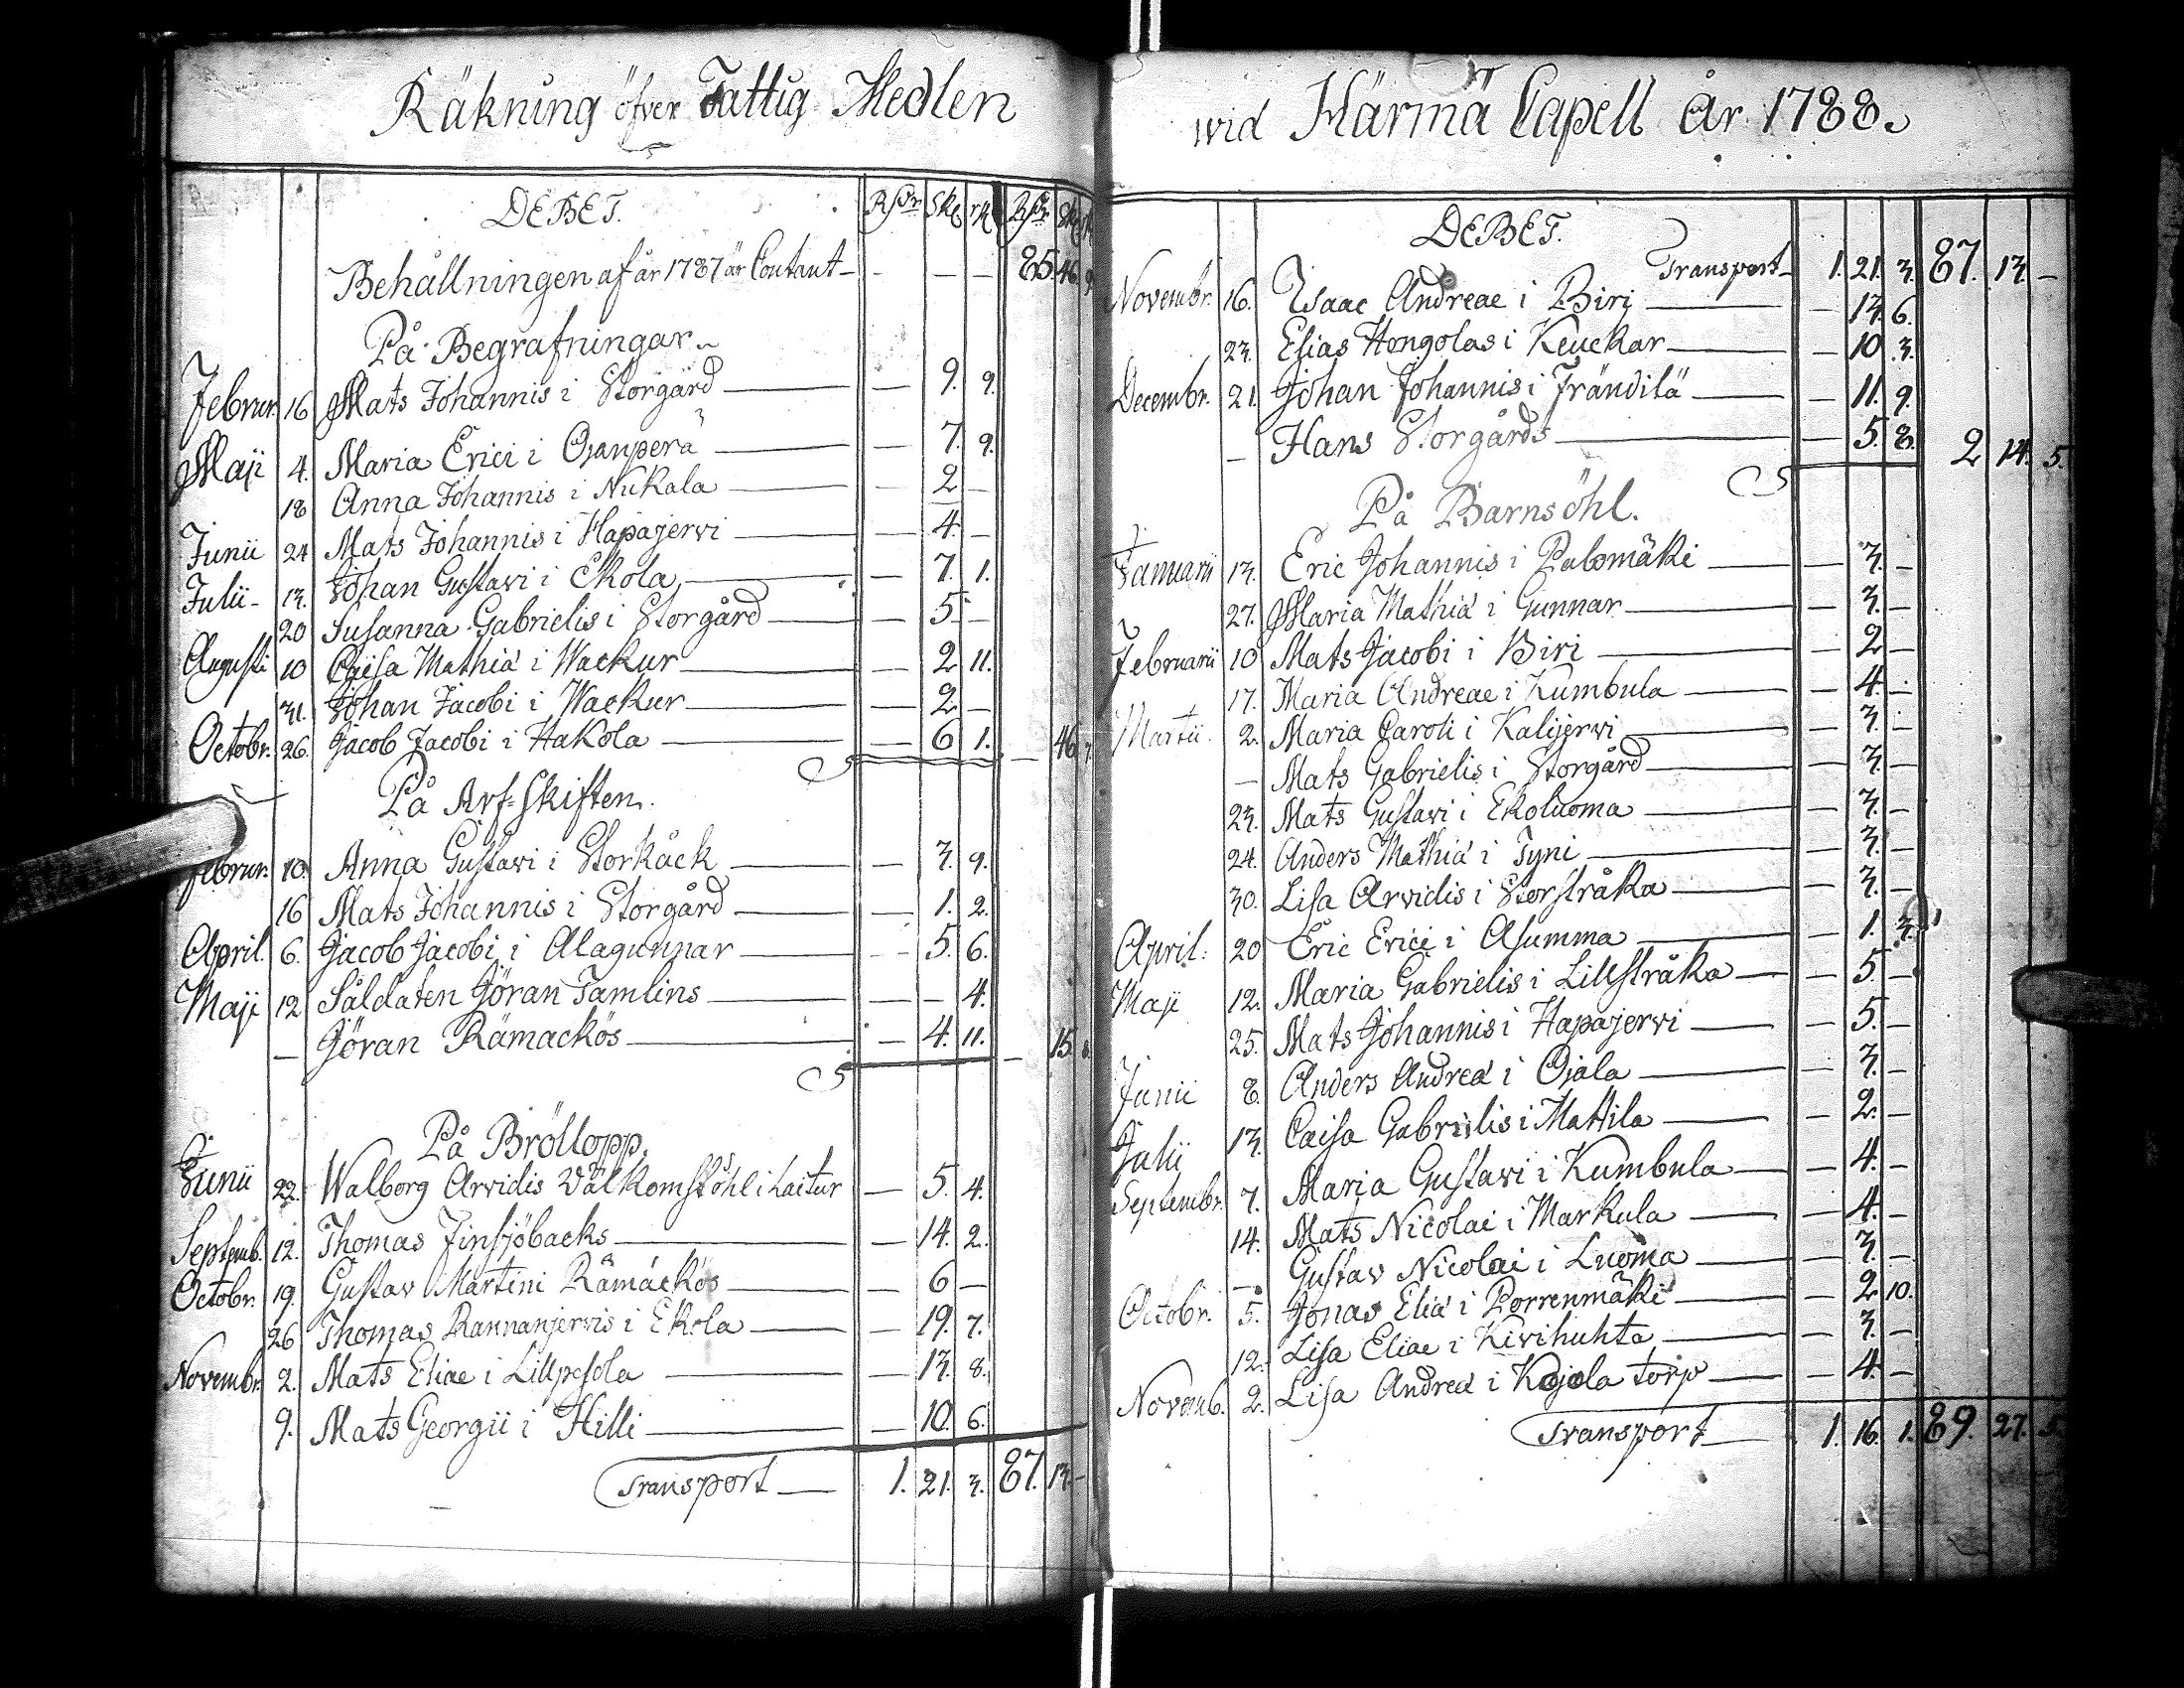 Räkning öfver Fattig-Medlen
DEBET. Rsdr Sk. rst. Rsdr Sk.
Behållningen af år 1787 är Contant – – – – 85. 46. 9.
På Begrafningar.
Februr. 16 Mats Johannis i Storgård — 9. 9.
Maji 4. Maria Erici i Ojanperä — 7. 9.
18 Anna Johannis i Nukala — 2 –
Junii 24 Mats Johannis i Hapajervi — 4. –
Julii 13. Johan Gustavi i Ekola — 7. 1.
20 Susanna Gabrielis i Storgård — 5. –
Augusti 10 Cajsa Mathiæ i Wackur — 2 11.
31. Johan Jacobi i Wackur — 2 –
Octobr. 26. Jacob Jacobi i Hakola — 6 1. – 46 7.
På Arf-Skiften.
Februr. 10. Anna Gustavi i Storkåck — 3. 9.
16 Mats Johannis i Storgård — 1. 2.
April. 6. Jacob Jacobi i Alagunnar — 5. 6.
Maji 12 Såldaten Göran Tamlins — – 4.
– Göran Rämackös — 4. 11. – 15. 8.
På Bröllopp.
Junii 22. Walborg Arvidis Välkomstöhl i Laitur — 5. 4.
Septemb. 12. Thomas Finsjöbacks — 14. 2.
Octobr. 19. Gustav Martini Rämäckös — 6 –
26 Thomas Rannanjervis i Ekola — 19. 7.
Novembr. 2. Mats Eliae i Lillpesola — 13. 8.
9. Mats Georgii i Hilli — 10. 6.
Transport — 1. 21. 3. 87. 13. –
wid Härmä Capell år 1788.
DEBET.
Transport – 1. 21. 3. 87. 13. –
Novembr. 16. Isaac Andreae i Biri — 13. 6.
23. Elias Hongolas i Keuckar — 10. 3.
Decembr. 21. Johan Johannis i Frändilä — 11. 9.
– Hans Storgårds — 5. 8. 2 14. 5.
På Barnsöhl.
Januarii 13. Eric Johannis i Palomäki — 3. –
27. Maria Mathiæ i Gunnar — 3. –
Februarii 10 Mats Jacobi i Biri — 2 –
17. Maria Andreae i Kumbula — 4. –
Martii. 2. Maria Caroli i Kalijervi — 3. –
– Mats Gabrielis i Storgård — 3. –
23. Mats Gustavi i Ekoluoma — 3. –
24. Anders Mathiæ i Tyni — 3. –
30. Lisa Arvidis i Storstråka — 3. –
April. 20 Eric Erici i Asumma — 1. 3.
Maji 12. Maria Gabrielis i Lillstråka — 5. –
25. Mats Johannis i Hapajervi — 5. –
Junii 8. Anders Andreæ i Ojala — 3. –
Julii 13. Caisa Gabrielis i Mattila — 2. –
Septembr. 7. Maria Gustavi i Kumbula — 4. –
14. Mats Nicolai i Markula — 4. –
– Gustav Nicolai i Luoma — 3. –
Octobr. 5. Jonas Eliæ i Porrenmäki — 2 10.
12. Lisa Eliae i Kivihuhta — 3. –
Novemb. 2. Lisa Andreæ i Kojola torp — 4. –
Transport — 1. 16. 1. 89. 27. 5.